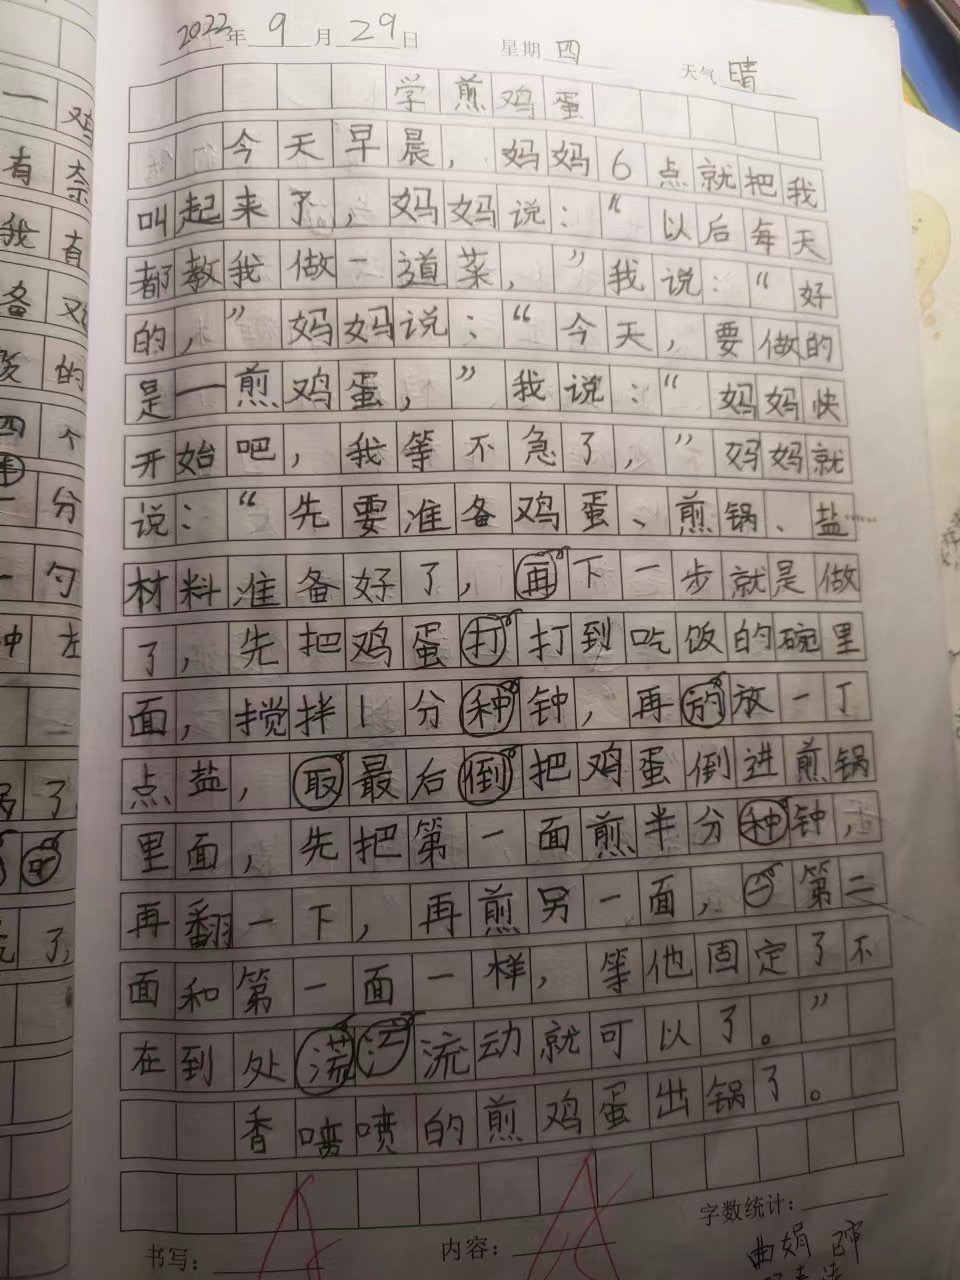 2022年 9 月 29 日 星期 四 天气 晴
学煎鸡蛋
今天早晨，妈妈6点就把我
叫起来了，妈妈说：“以后每天
都教我做一道菜，”我说：“好
的，”妈妈说：“今天，要做的
是一煎鸡蛋，”我说：“妈妈快
开始吧，我等不急了，”妈妈就
说：“先要准备鸡蛋、煎锅、盐……
材料准备好了，再下一步就是做
了，先把鸡蛋打打到吃饭的碗里
面，搅拌1分种钟，再的放一丁
点盐，取最后倒把鸡蛋倒进煎锅
里面，先把第一面煎半分种钟，
再翻一下，再煎另一面，第二
面和第一面一样，等他固定了不
在到处流动就可以了。”
香喷喷的煎鸡蛋出锅了。
书写： 内容： 字数统计：
曲娟
一 鸡
有 奈
我 有
备 鸡
的
四 个
分
一 勺
钟 左
了
了，